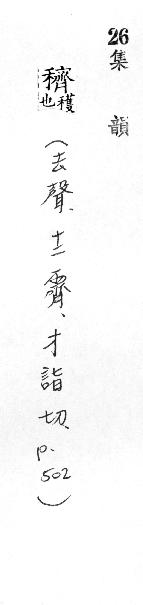 26集韻
穧穫也
（去聲、十二霽、才詣切、p.502）